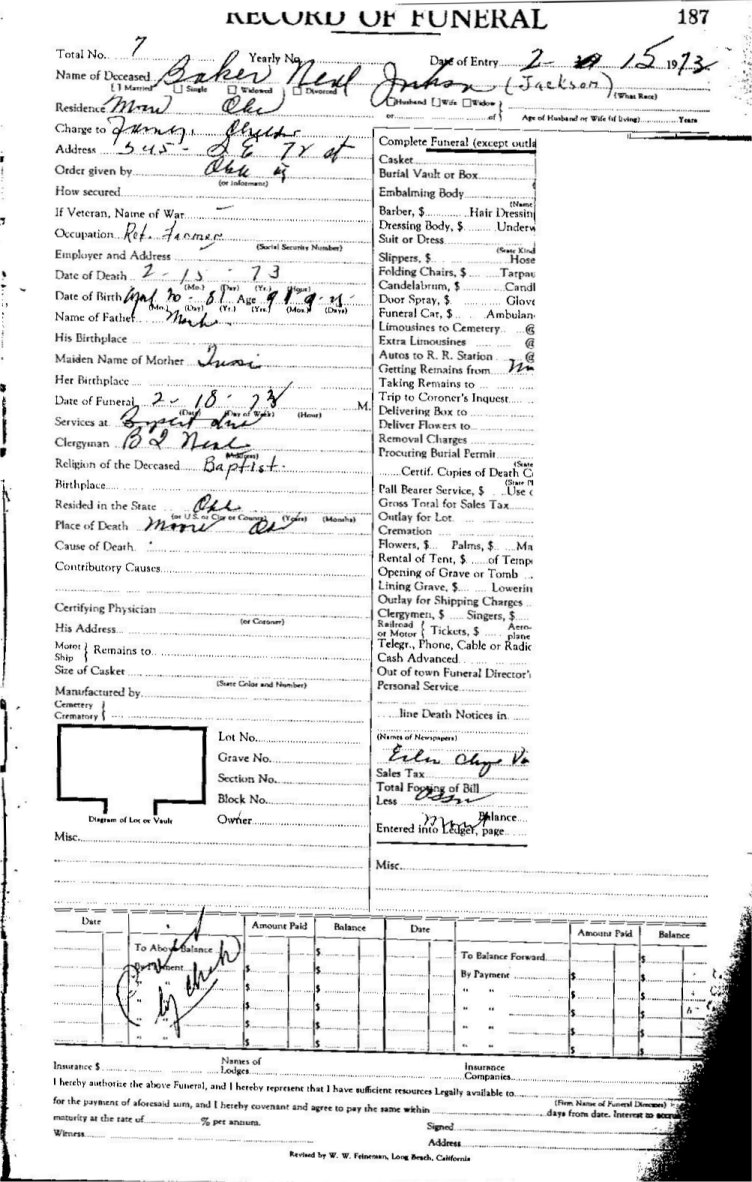 RECORD OF FUNERAL 187
Total No. 7 Yearly No. Date of Entry 2 15 1973
Name of Deceased Baker Neal (Jackson)
[ ] Married Single Widowed Divorced (What Race)
Husband Wife Widow
Residence Moore Okla or of Age of Husband or Wife (if living) Years
Charge to
Address S45 - S E 72 st
Order given by
(or Informant)
How secured
If Veteran, Name of War —
Occupation Ret. Farmer
(Social Security Number)
Employer and Address
Date of Death 2 - 15 - 73
(Mo.) (Day) (Yr.) (Hour)
Date of Birth Age
(Mo.) (Day) (Yr.) (Yrs.) (Mos.) (Days)
Name of Father
His Birthplace
Maiden Name of Mother
Her Birthplace
Date of Funeral 2 - 18 - 73 M.
(Date) (Day of Week) (Hour)
Services at
Clergyman B Neal
(Address)
Religion of the Deceased Baptist
Birthplace
Resided in the State Okla
(or U.S. or City or County) (Years) (Months)
Place of Death Moore Ok
Cause of Death
Contributory Causes
Certifying Physician
(or Coroner)
His Address
Motor Ship } Remains to
Size of Casket
(State Color and Number)
Manufactured by
Cemetery
Crematory
Lot No.
Grave No.
Section No.
Block No.
Diagram of Lot or Vault Owner
Misc.
Complete Funeral (except outla
Casket
Burial Vault or Box
Embalming Body
(Name
Barber, $ Hair Dressin
Dressing Body, $ Underw
Suit or Dress
(State Kind
Slippers, $ Hose
Folding Chairs, $ Tarpau
Candelabrum, $ Candl
Door Spray, $ Glove
Funeral Car, $ Ambulan
Limousines to Cemetery @
Extra Limousines @
Autos to R. R. Station @
Getting Remains from
Taking Remains to
Trip to Coroner's Inquest
Delivering Box to
Deliver Flowers to
Removal Charges
Procuring Burial Permit
(State
Certif. Copies of Death C
(State
Pall Bearer Service, $ Use
Gross Total for Sales Tax
Outlay for Lot
Cremation
Flowers, $ Palms, $ Ma
Rental of Tent, $ of Temp
Opening of Grave or Tomb
Lining Grave, $ Lowerin
Outlay for Shipping Charges
Clergymen, $ Singers, $
Railroad or Motor { Tickets, $ Aero-plane
Telegr., Phone, Cable or Radio
Cash Advanced
Out of town Funeral Director's
Personal Service
line Death Notices in
(Names of Newspapers)
Sales Tax
Total Footing of Bill
Less
Balance
Entered into Ledger, page
Misc.
Date Amount Paid Balance Date Amount Paid Balance
To Above Balance To Balance Forward
By Payment By Payment
by check
Insurance $ Names of Lodges Insurance Companies
I hereby authorize the above Funeral, and I hereby represent that I have sufficient resources Legally available to
(Firm Name of Funeral Directors)
for the payment of aforesaid sum, and I hereby covenant and agree to pay the same within days from date. Interest to accru
maturity at the rate of % per annum. Signed
Witness Address
Revised by W. W. Feineman, Long Beach, California